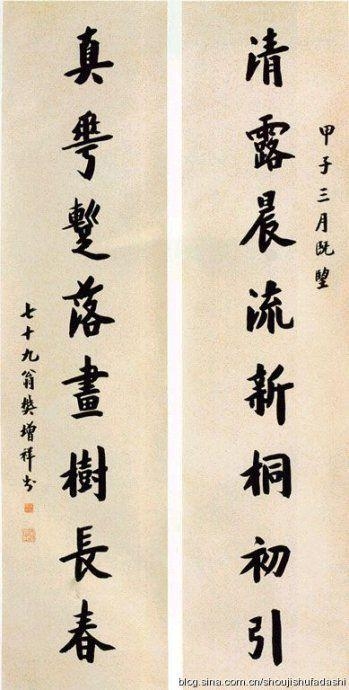 甲子三月既朢
清露晨流新桐初引
真𠌶蹔落畫樹長春
七十九翁樊增祥书
blog.sina.com.cn/shoujishufadashi